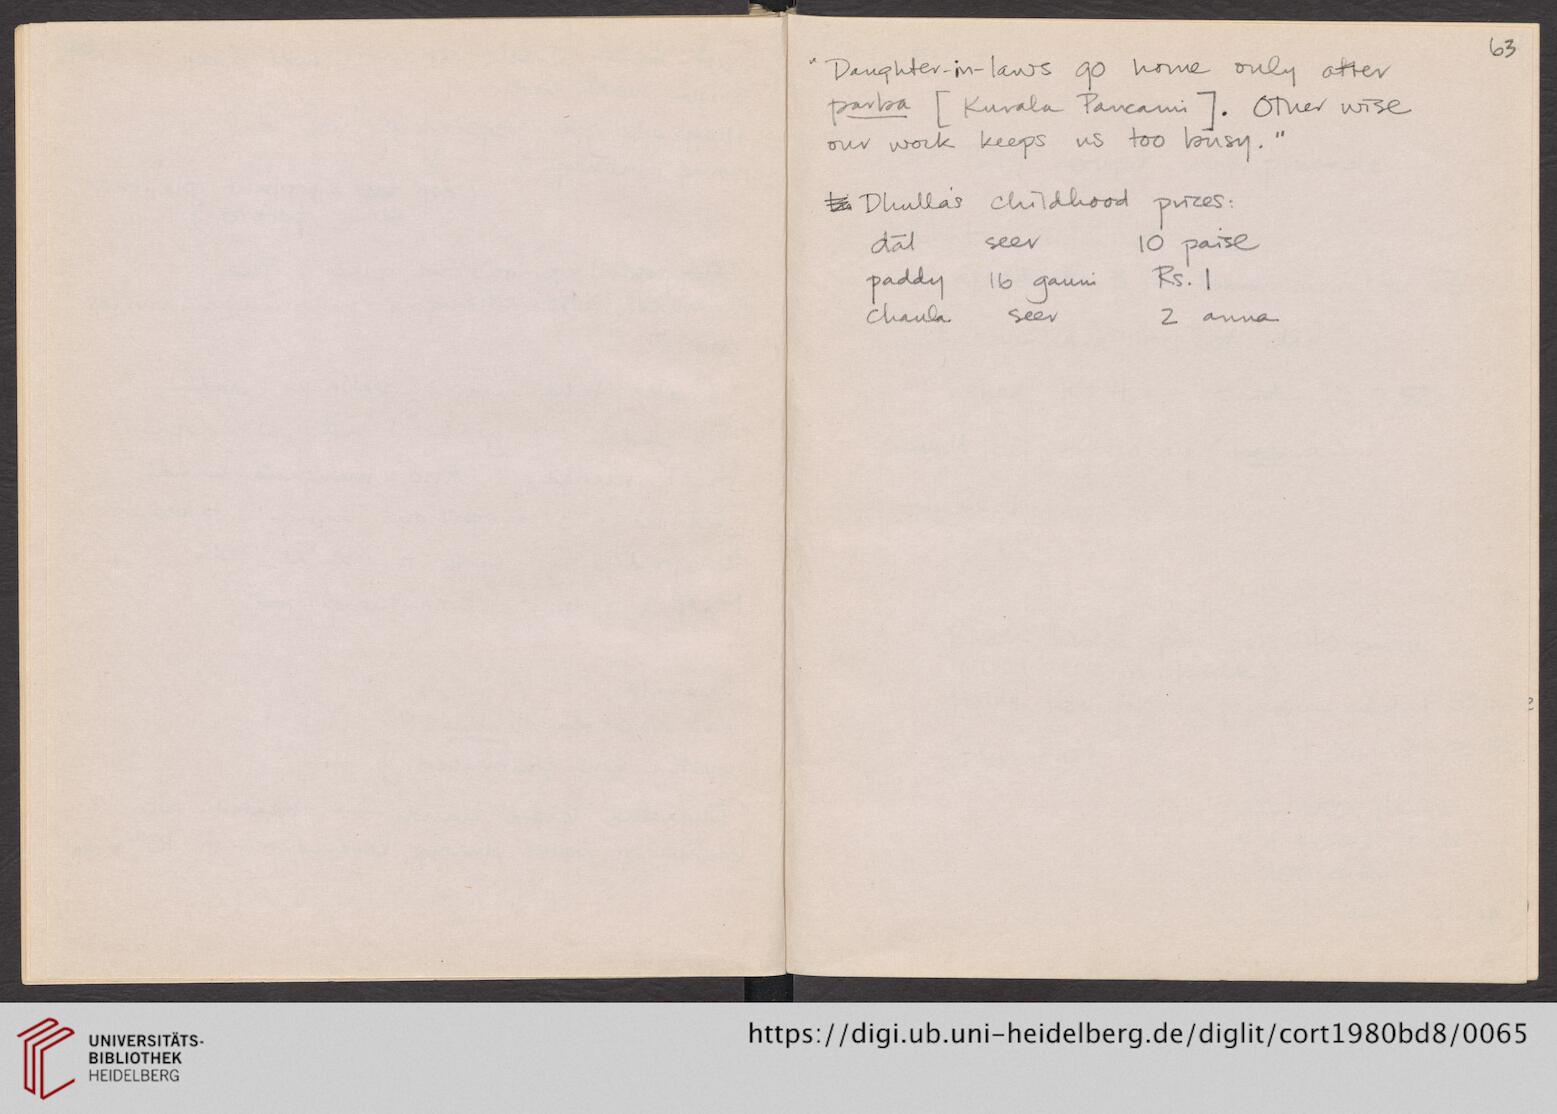 63
"Daughter-in-laws go home only after
parba [Kurala Pancami]. Other wise
our work keeps us too busy."
Dhulla's childhood prizes:
dāl seer 10 paise
paddy 16 gauni Rs. 1
chaula seer 2 anna
UNIVERSITÄTS-
BIBLIOTHEK
HEIDELBERG
https://digi.ub.uni-heidelberg.de/diglit/cort1980bd8/0065